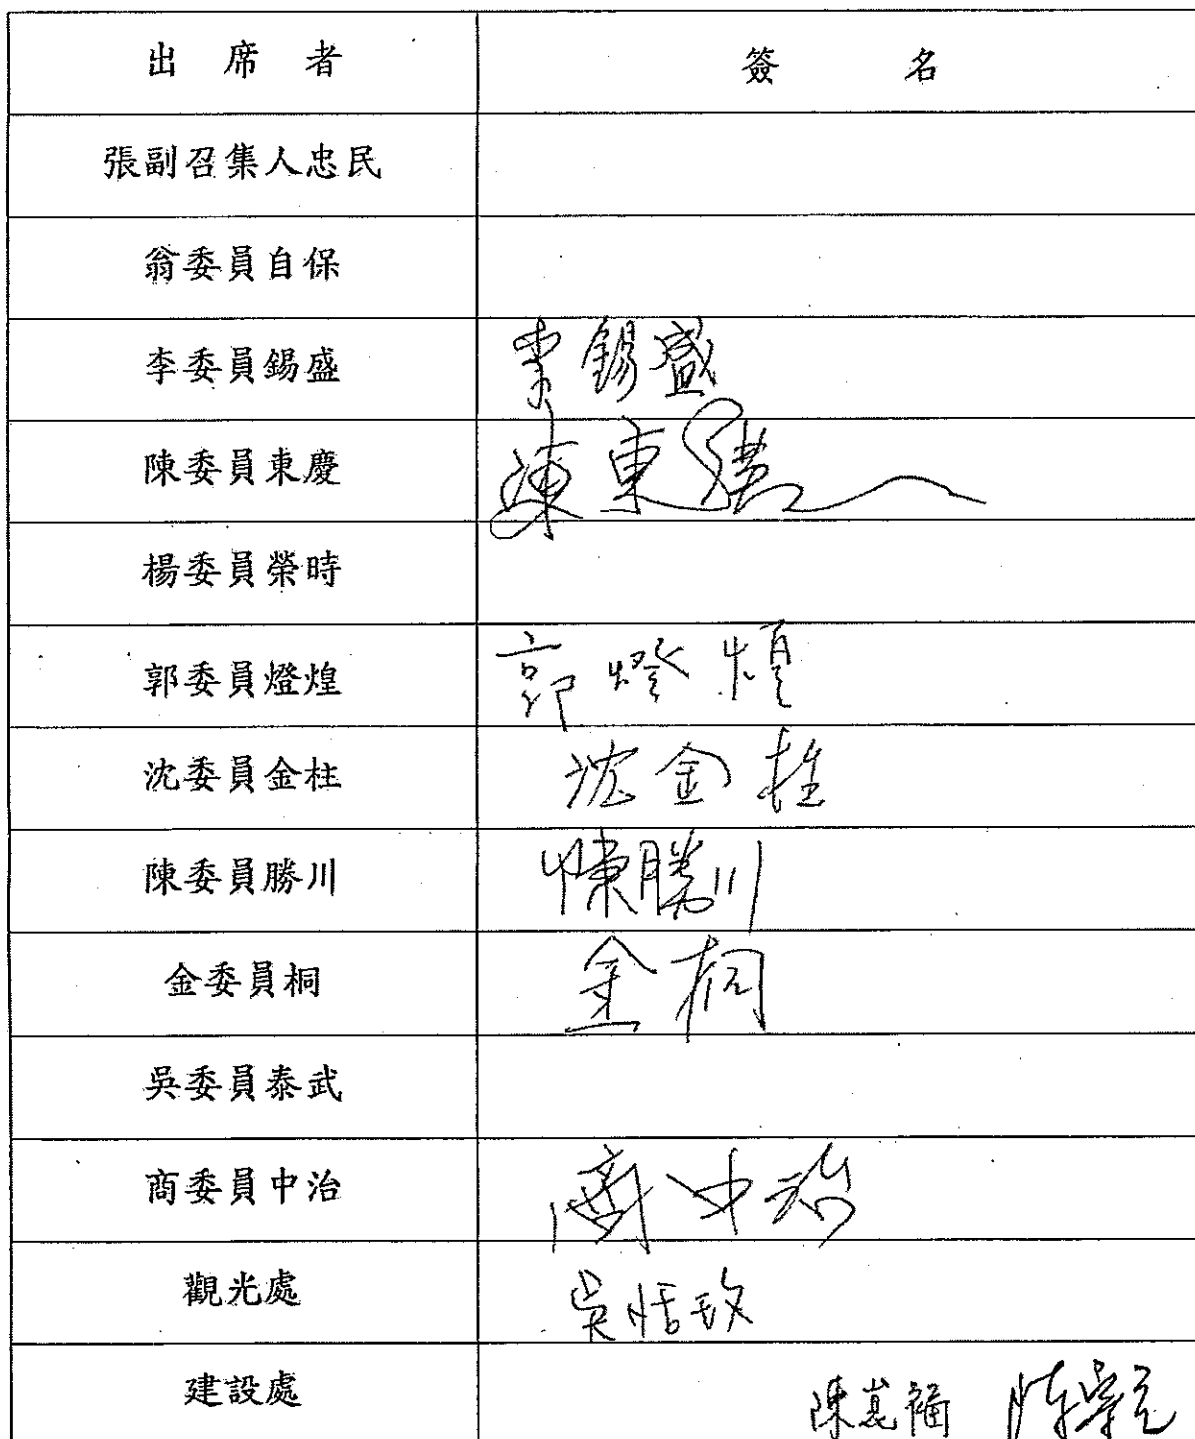 出席者 簽名
張副召集人忠民
翁委員自保
李委員錫盛 李錫盛
陳委員東慶 陳東慶
楊委員榮時
郭委員燈煌 郭燈煌
沈委員金柱 沈金柱
陳委員勝川 陳勝川
金委員桐 金桐
吳委員泰武
商委員中治 商中治
觀光處 吳恬玫
建設處